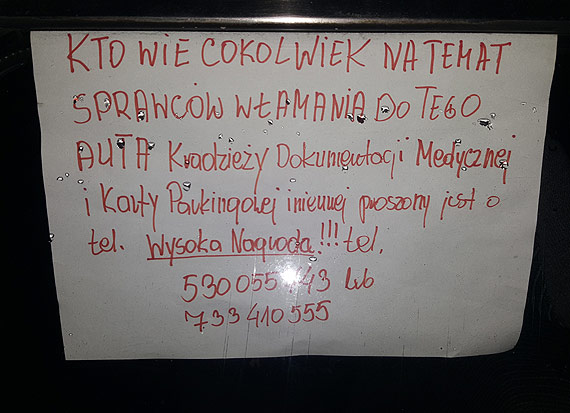 KTO WIE COKOLWIEK NA TEMAT
SPRAWCÓW WŁAMANIA DO TEGO
AUTA Kradzieży Dokumentacji Medycznej
i Karty Parkingowej imiennej proszony jest o
tel. Wysoka Nagroda!!! tel.
530 055 43 lub
733 410 555